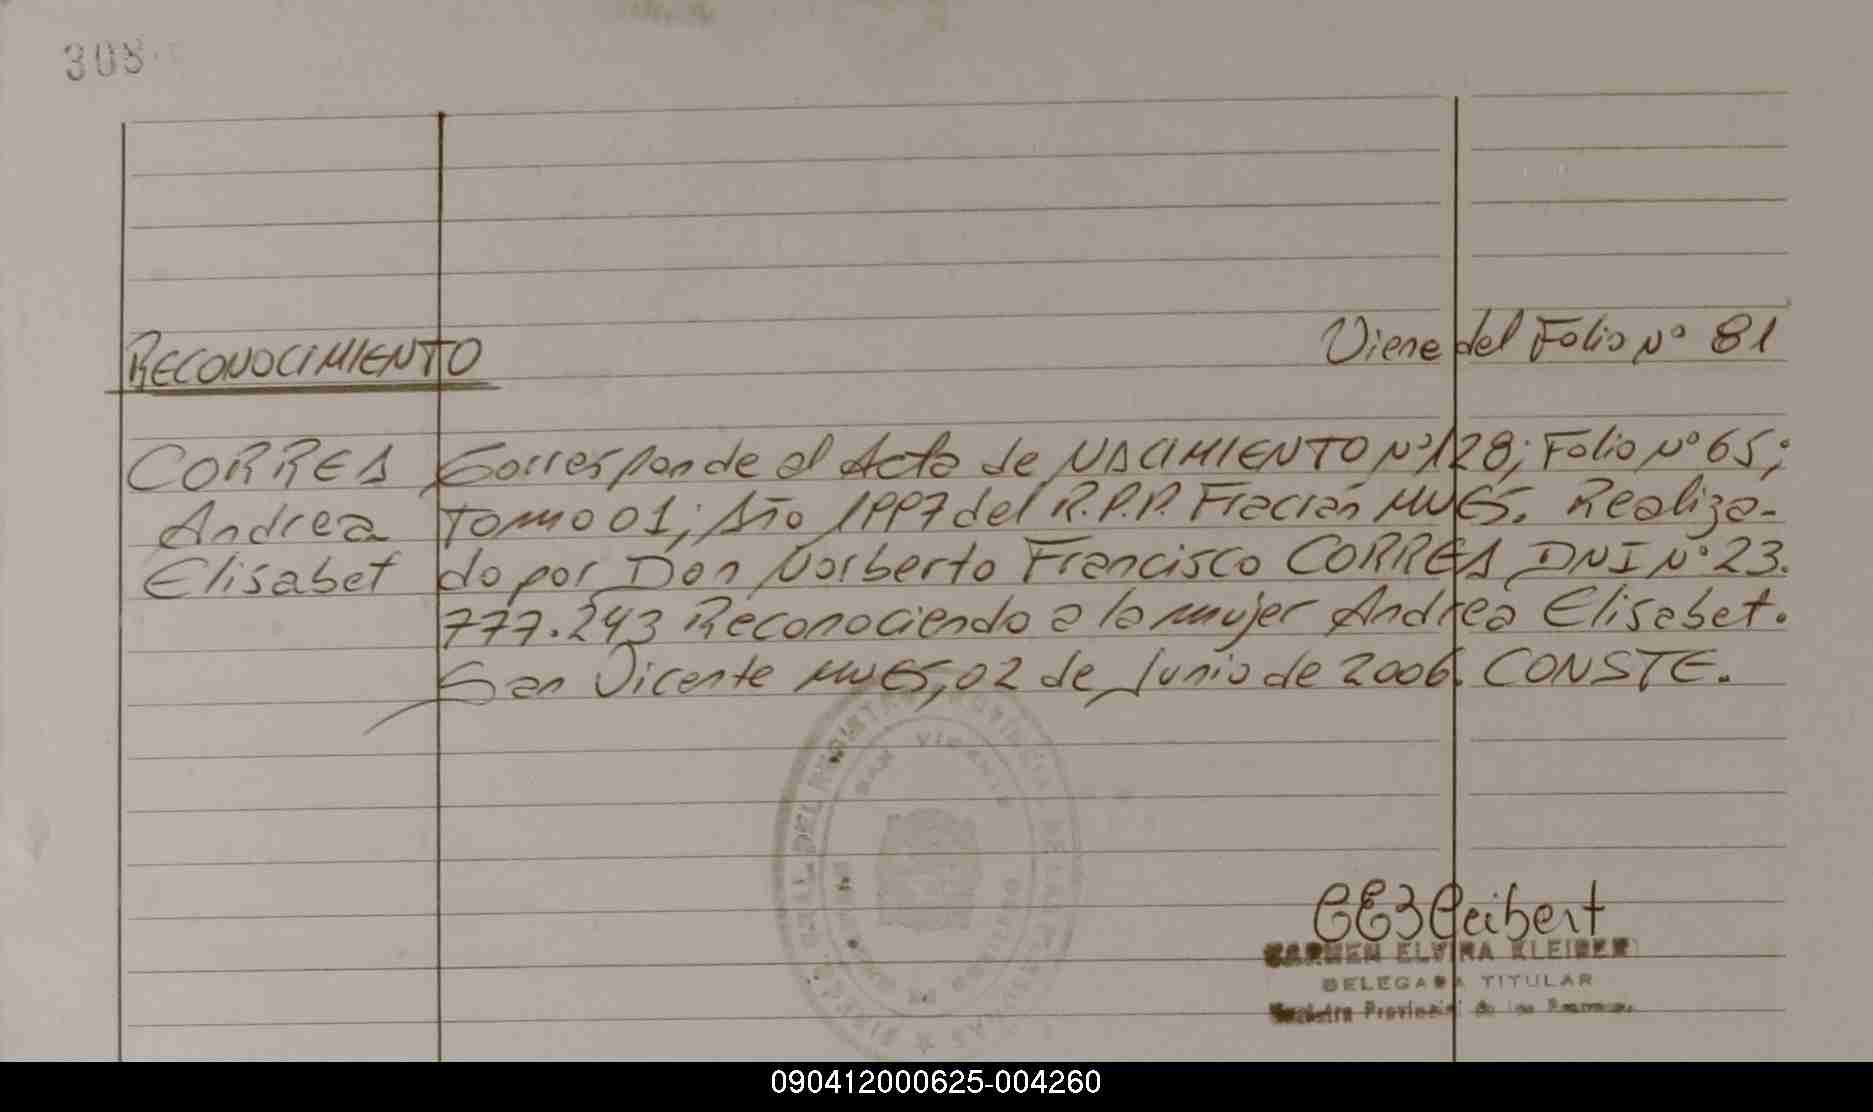 308
Viene del Folio Nº 81
RECONOCIMIENTO
CORRES Corresponde al Acta de NACIMIENTO Nº 128; Folio Nº 65;
Andrea Tomo 01; Año 1997 del R.P.P. Fracrán MNES. Realiza-
Elisabet do por Don Norberto Francisco CORRES DNI Nº 23.
777.243 Reconociendo a la mujer Andrea Elisabet.
San Vicente MNES, 02 de Junio de 2006. CONSTE.
SAN VICENTE
CARMEN ELVIRA
DELEGADA TITULAR
Registro Provincial de las Personas
090412000625-004260